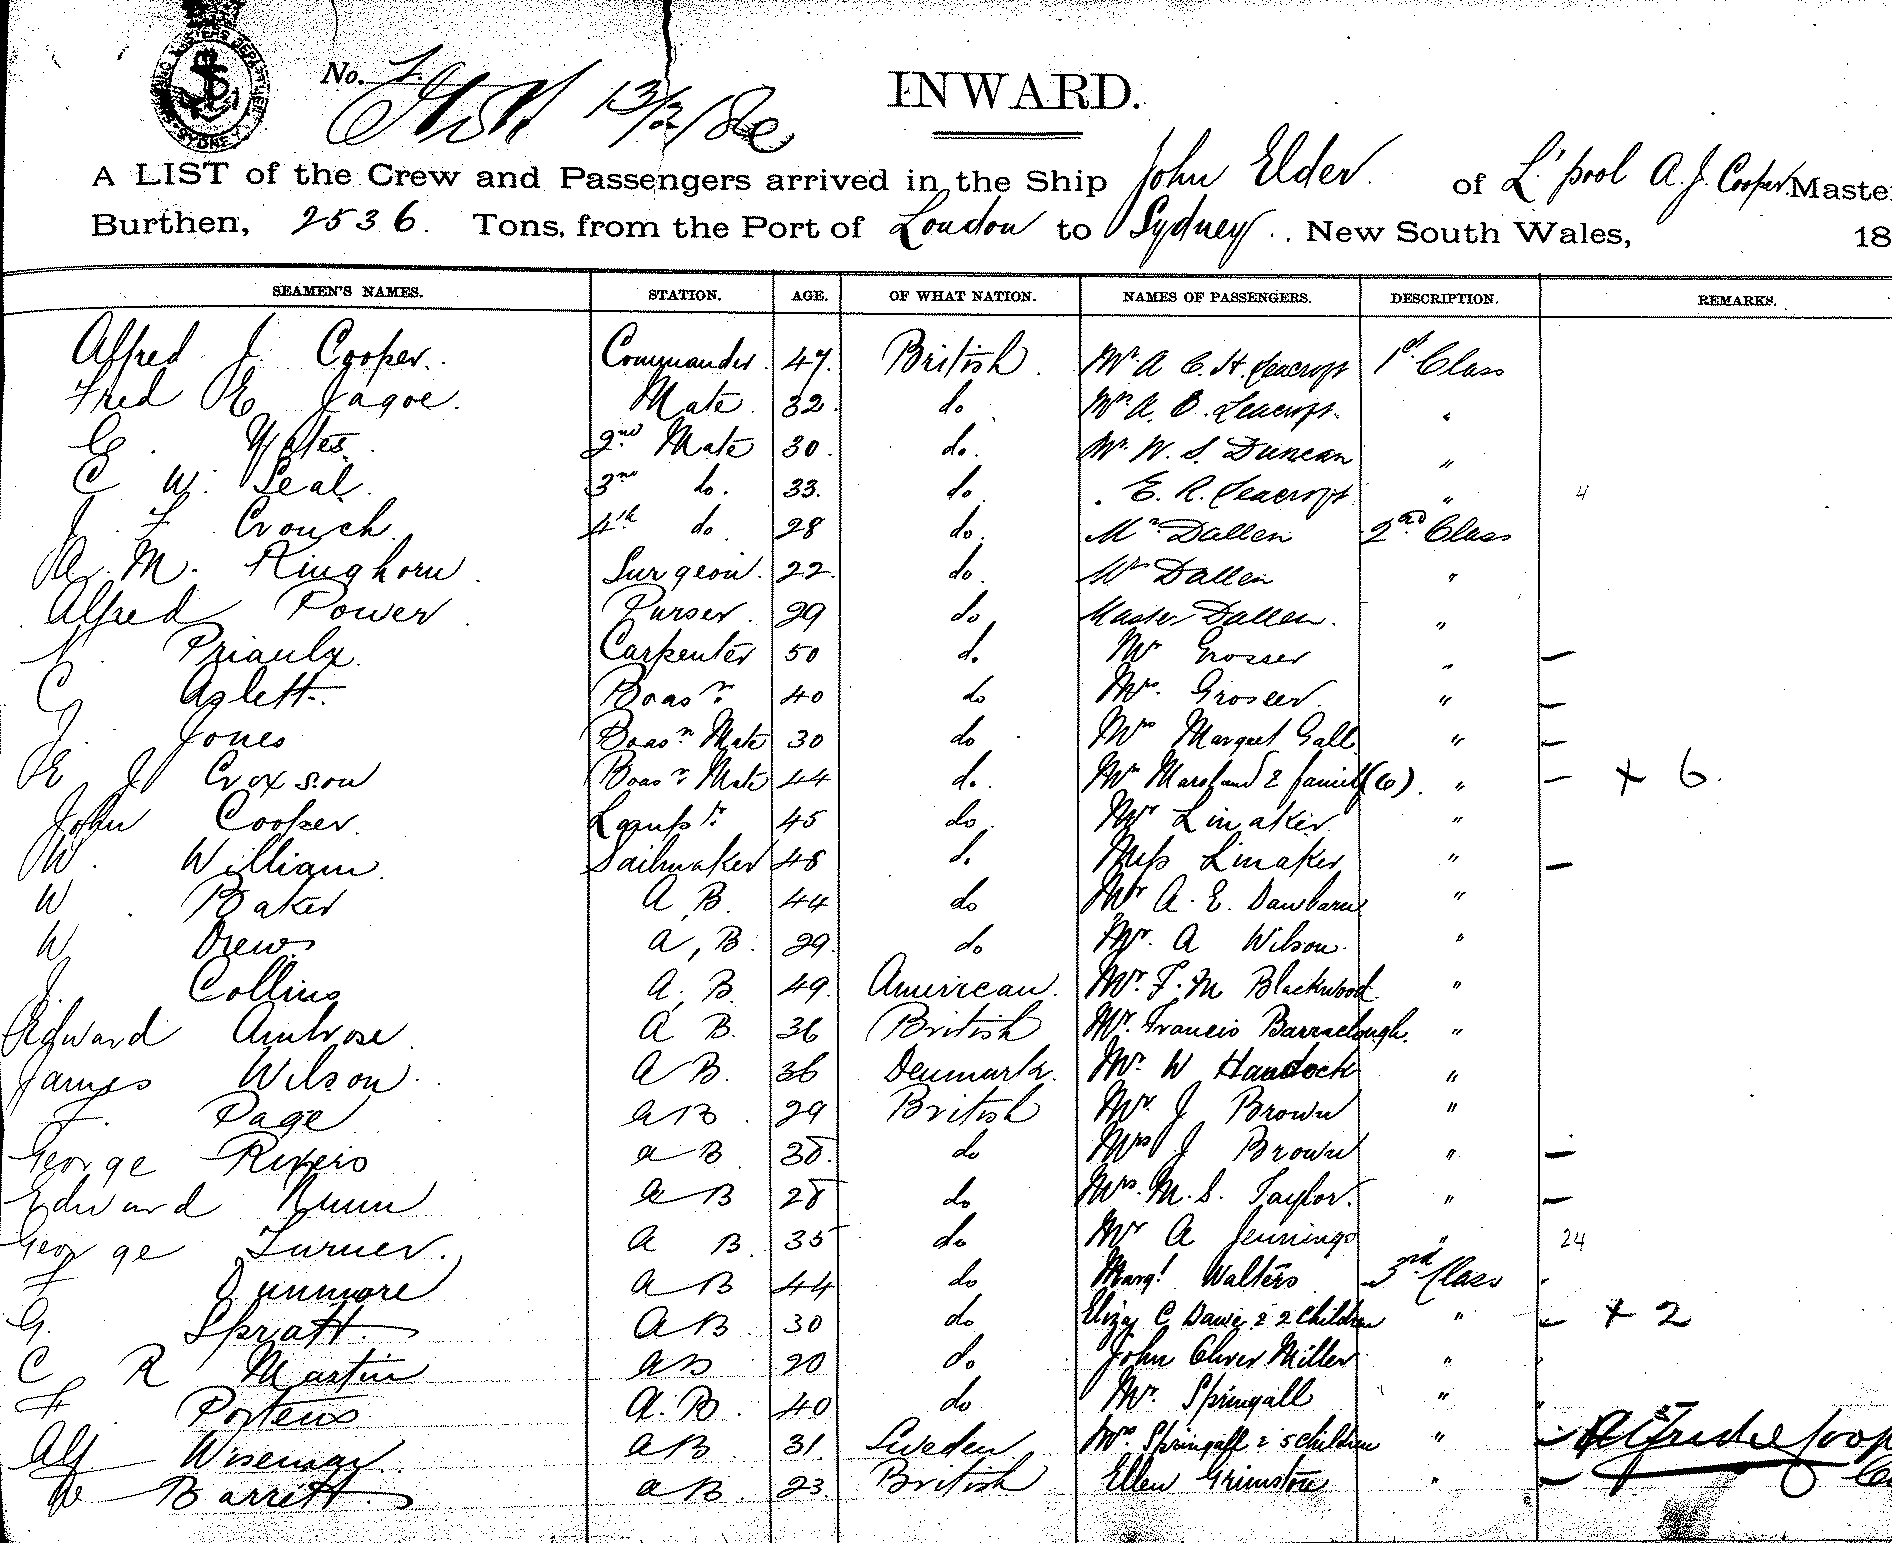 No. 1
13/3/86
INWARD.
A LIST of the Crew and Passengers arrived in the Ship John Elder of L'pool A. J. Cooper Maste
Burthen, 2536. Tons, from the Port of London to Sydney, New South Wales, 18
SEAMEN'S NAMES. STATION. AGE. OF WHAT NATION. NAMES OF PASSENGERS. DESCRIPTION. REMARKS.
Alfred J. Cooper. Commander 47. British. Mr. A C. H. Leacroft 1st Class
Fred E Jagoe. Mate 32. do Mrs. A. C. Leacroft. "
E. Yates. 2nd Mate 30. do. Mr. W. S. Duncan "
C W. Seal. 3rd do. 33. do. . E. R. Leacroft. " 4
J. F Crouch 4th do 28 do. Mr Dallen 2nd Class
A. M. Kinghorn. Surgeon. 22. do. Mrs Dallen "
Alfred Power Purser. 29 do Master Dallen. "
N. Priaulx. Carpenter 50 do Mr Grosser " —
C Aslett. Boasn. 40 do Mrs. Grosser " —
J. Jones Boasn Mate 30 do Mrs Margaret Gall " —
E J Croxson Boasn Mate 44 do. Mrs Marshand & family (6). " — + 6.
John Cooper. Lampr. 45 do. Mr Linaker "
W. William. Sailmaker 48 do. Miss Linaker " —
W. Baker A B. 44 do Mr A. E. Dawbarn "
W Drews A, B. 29. do Mr. A Wilson. "
J. Collins A. B. 49. American. Mr. F. M Blackwood "
Edward Ambrose A B. 36 British Mr. Francis Barraclough. "
James Wilson. A B. 36 Denmark. Mr. W Haddock "
F. Page AB. 29 British Mr. J Brown "
George Rivers A B 38. do Mrs J Brown " —
Edward Nunn A B 28 do Mrs. M. S. Taylor. " —
George Turner. A B. 35 do Mr A Jennings " 24
F Dunmore A B 44 do Margt Walters 3rd Class
G. Spratt AB 30 do Eliza C Dawe & 2 children " — + 2
C R Martin AB 20 do John Oliver Miller "
F Porteus A. B. 40 do Mr. Springall "
Alf Wiseman AB 31. Sweden Mrs Springall & 5 children " —
Barrett. AB. 23. British Ellen Grimston " —